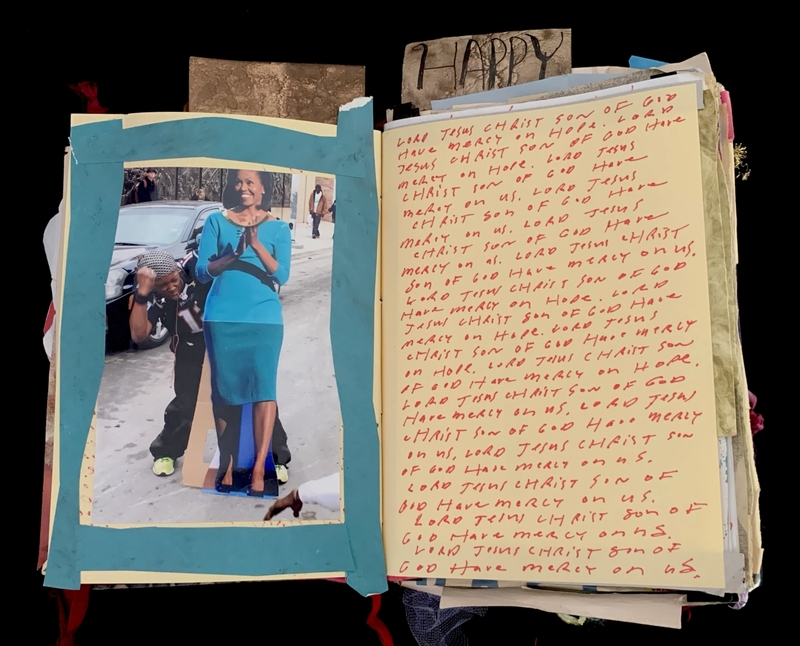 HAPPY
LORD JESUS CHRIST SON OF GOD
HAVE MERCY ON HOPE. LORD
JESUS CHRIST SON OF GOD HAVE
MERCY ON HOPE. LORD JESUS
CHRIST SON OF GOD HAVE
MERCY ON US. LORD JESUS
CHRIST SON OF GOD HAVE
MERCY ON US. LORD JESUS
CHRIST SON OF GOD HAVE
MERCY ON US. LORD JESUS CHRIST
SON OF GOD HAVE MERCY ON US.
LORD JESUS CHRIST SON OF GOD
HAVE MERCY ON HOPE. LORD
JESUS CHRIST SON OF GOD HAVE
MERCY ON HOPE. LORD JESUS
CHRIST SON OF GOD HAVE MERCY
ON HOPE. LORD JESUS CHRIST SON
OF GOD HAVE MERCY ON HOPE.
LORD JESUS CHRIST SON OF GOD
HAVE MERCY ON US. LORD JESUS
CHRIST SON OF GOD HAVE MERCY
ON US. LORD JESUS CHRIST SON
OF GOD HAVE MERCY ON US.
LORD JESUS CHRIST SON OF
GOD HAVE MERCY ON US.
LORD JESUS CHRIST SON OF
GOD HAVE MERCY ON US.
LORD JESUS CHRIST SON OF
GOD HAVE MERCY ON US.